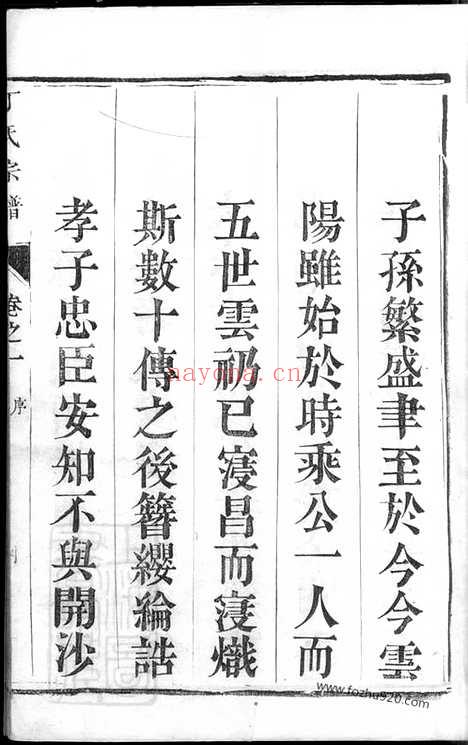 子孫繁盛聿至於今今雲
陽雖始於時乘公一人而
五世雲礽已寖昌而寖熾
斯數十傳之後簪纓綸誥
孝子忠臣安知不與開沙
丁氏宗譜
卷之一
序
hayona.cn
www.fozhu920.com